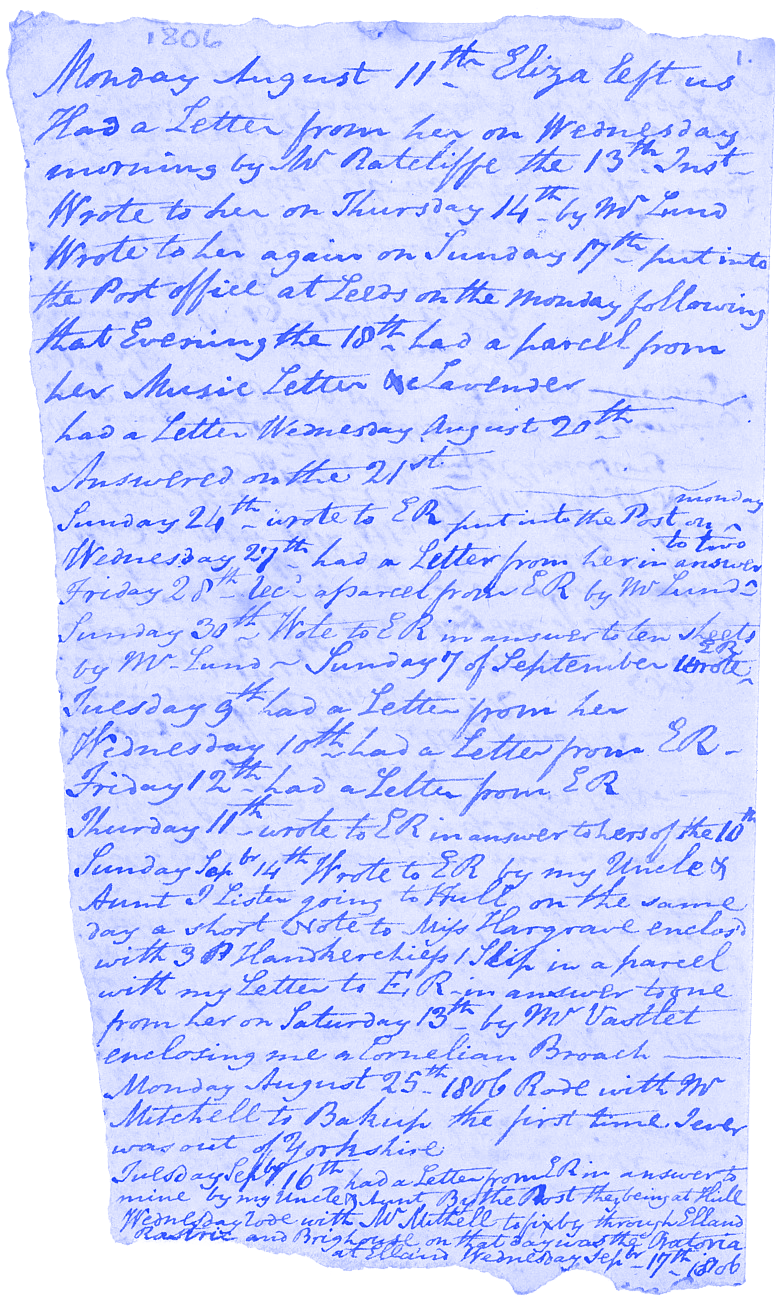 1806
1.
Monday August 11th Eliza left us
Had a Letter from her on Wednesday
morning by Mr Ratcliffe the 13th Inst
Wrote to her on Thursday 14th by Mr Lund
Wrote to her again on Sunday 17th put into
the Post office at Leeds on the Monday following
that Evening the 18th had a parcel from
her Music Letter & Lavender
had a Letter Wednesday August 20th
Answered on the 21st
monday
Sunday 24th wrote to ER put into the Post on ^
to two
Wednesday 27th had a Letter from her in answer ^
Friday 28th rec'd a parcel from ER by Mr Lund
Sunday 30th Wote to ER in answer to ten sheets
ER
by Mr Lund ~ Sunday 7 of September Wrote ^
Tuesday 9th had a Letter from her
Wednesday 10th had a Letter from ER
Friday 12th had a Letter from ER
Thurday 11th wrote to ER in answer to hers of the 10th
Sunday Sepbr 14th Wrote to ER by my Uncle &
Aunt J Lister going to Hull, on the same
day a short Note to Miss Hargrave enclos'd
with 3 P Handkerchiefs 1 Slip in a parcel
with my Letter to E, R in answer to one
from her on Saturday 13th by Mr Vastlet
enclosing me a Cornelian Broach
Monday August 25th 1806 Rode with Mr
Mitchell to Bakup the first time I ever
was out of Yorkshire
Tuesday Sepbr 16th had a Letter from ER in answer to
mine by my Uncle & Aunt By the Post they being at Hull
Wednesday rode with Mr Mithell to fixby through Elland
Rastric and Brighouse on that day was the Oratoria
at Elland Wednesday Sepbr 17th 1806